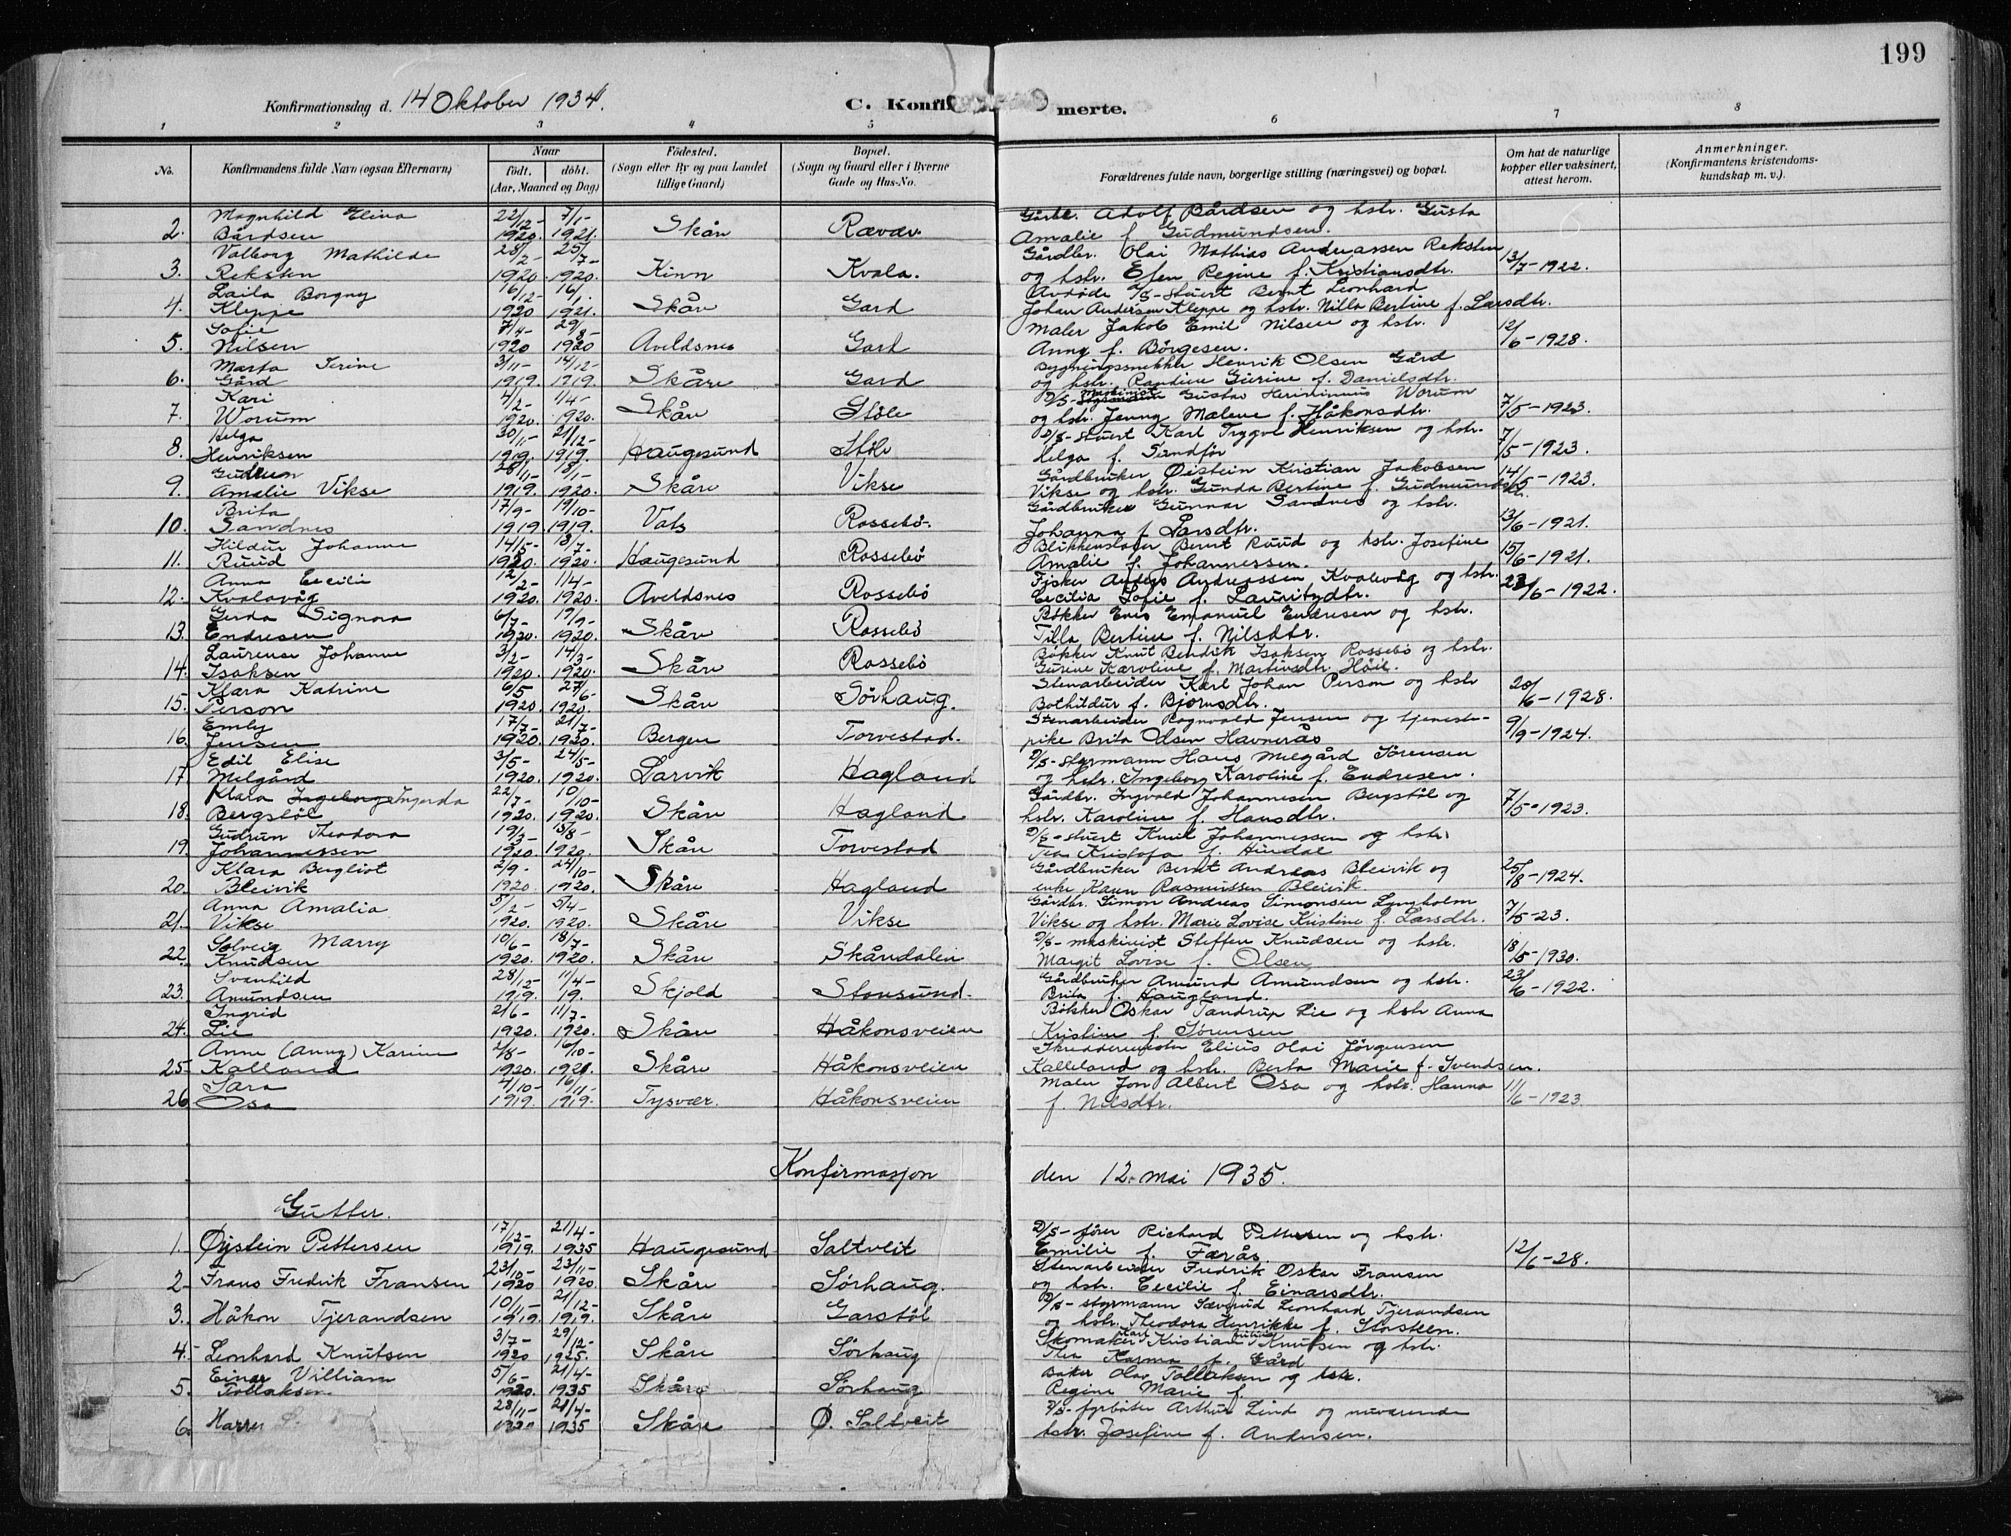 199
Konfirmationsdag d. 14 Oktober 1934.
C. Konfi merte.
1 2 3 4 5 6 7 8
No.
Konfirmandens fulde Navn (ogsaa Efternavn)
Naar
födt. döbt.
(Aar, Maaned og Dag)
Födested.
(Sogn eller By og paa Landet
tillige Gaard)
Bopæl.
(Sogn og Gaard eller i Byerne
Gade og Hus-No.
Forældrenes fulde navn, borgerlige stilling (næringsvei) og bopæl.
Om hat de naturlige
kopper eller vaksinert,
attest herom.
Anmerkninger.
(Konfirmantens kristendoms-
kundskap m. v.).
Magnhild Elina 22/12- 7/1- Gårdbr. Adolf Bårdsen og hstr. Gusta
2. Bårdsen 1920. 1921. Skåre Rævær Amalie f. Gudmundsen.
Valborg Mathilde 28/2- 25/7- Gårdbr. Olai Mathias Andreassen Reksten
3. Reksten 1920. 1920. Kinn Kvala. og hstr. Regine f. Kristiansdtr. 13/7-1922.
Laila Borgny 16/12- 16/1. Avdøde D/S-stuert Bernt Leonhard
4. Kleppe 1920 1921. Skåre Gard Johan Andersen Kleppe og hstr. Nilla Bertine f. Larsdtr.
Sofie 7/4- 29/8- Maler Jakob Emil Nilsen og hstr.
5. Nilsen 1920 1920 Aveldsnes Gard Anna f. Börgesen. 12/6-1928.
Marta Serine 3/11- 14/12- Bygningssnekker Henrik Olsen Gård
6. Gård 1919. 1919. Skåre Gard og hstr. Randine Gurine f. Danielsdtr.
Kari 4/2- 1/4- D/S- maskinist Gustav Worum
7. Worum 1920. 1920. Skåre Støle og hstr. Jenny Malene f. Håkonsdtr. 7/5-1923.
Helga 30/11- 21/12- D/S-stuert Karl Trygve Henriksen og hstr.
8. Henriksen 1919. 1919. Haugesund Støle Helga f. Sundför 7/5-1923.
Gudrun 28/11- 18/1- Gårdbruker Øistein Kristian Jakobsen
9. Amalie Vikse 1919. 1920. Skåre Vikse Vikse og hstr. Gunda Bertine f. Gudmundsdtr. 14/5-1923.
Brita 17/9- 19/10- Gårdbruker Gunnar Sandnes og hstr.
10. Sandnes 1919. 1919. Vats Rossebö- Johanna f. Larsdtr. 13/6-1921.
Hildur Johanne 14/5- 18/7- Blikkenslager Bernt Ruud og hstr. Josefine
11. Ruud 1920. 1920. Haugesund Rossebö Amalie f. Johannessen. 15/6-1921.
Anna Cecilie 12/2- 11/4- Fisker Anders Andreassen Kvalevåg og hstr.
12. Kvalavåg 1920. 1920. Aveldsnes Rossebö Cecilia Sofie f. Lauritzdtr. 23/6-1922.
Gerda Signora 6/7- 19/9- Bökker Enes Emanuel Endresen og hstr.
13. Endresen 1920. 1920. Skåre Rossebö Tilla Bertine f. Nilsdtr.
Laurense Johanne 3/2- 14/3- Bökker Knut Bendrik Isaksen Rossebö og hstr.
14. Isaksen 1920. 1920. Skåre Rossebö Gurine Karoline f. Martinsdtr. Höie.
Klara Katrine 6/5 27/6- Stenarbeider Karl Johan Person og hstr
15. Person 1920 1920. Skåre Sörhaug. Bothildur f. Bjornsdtr. 20/6-1928.
Emly 17/7- 21/7- Stenarbeider Ragnvald Jensen og tjeneste-
16. Jensen 1920. 1920. Bergen Torvestad. pike Brita Olsen Havnerås 9/9-1924.
Edit Elise 3/5- 24/5- D/S-styrmann Hans Melgård Sörensen
17 Melgård 1920. 1920. Larvik Hagland og hstr. Ingeborg Karoline f. Endresen.
Klara Ingeborg Ingerda 22/7- 10/10- Gårdbr. Ingvald Johannesen Bergstöl og
18. Bergstöl 1920. 1920. Skåre Hagland hstr. Karoline f. Hansdtr. 7/5-1923.
Gudrun Theodora 19/3- 15/8- D/S-stuert Knut Johannessen og hstr.
19. Johannessen 1920. 1920. Skåre Torvestad Tea Kristofa f. Hindal
Klara Bergliot 2/9- 24/10- Gårdbruker Bernt Andreas Bleivik og
20. Bleivik 1920 1920. Skåre Hagland enke Karen Rasmussen Bleivik 25/8-1924.
Anna Amalia 5/2- 5/4- Gårdbr. Simon Andreas Simonsen Lyngholm
21. Vikse 1920. 1920. Skåre Vikse Vikse og hstr. Marie Lovise Kristine f. Larsdtr. 7/5-23.
Solveig Marry 10/6- 18/7- D/S-maskinist Steffen Knudsen og hstr.
22. Knudsen 1920. 1920. Skåre Skåredalen Margit Lovise f. Olsen 18/5-1930.
Svanhild 28/12- 11/4- Gårdbruker Amund Amundsen og hstr.
23. Amundsen 1919. 19. Skjold Stonsund. Brita f. Haugland. 23/6-1922.
Ingrid 2/6- 11/7- Bökker Oskar Tandrup Lie og hstr Anna
24. Lie 1920. 1920. Skåre Håkonsveien Kristine f. Sörensen
Anne (Anny) Karine 2/8- 16/10- Skreddermester Elius Olai Jörgensen
25- Kalland 1920. 1920. Skåre Håkonsveien Kalleland og hstr. Berta Marie f. Svendsen.
Sara 4/10- 16/11- Maler Jon Albert Osa og hstr. Hanna
26 Osa 1919. 1919. Tysvær. Håkonsveien f. Nilsdtr. 11/6-1923
Konfirmasjon den 12. mai 1935.
Gutter.
17/12- 21/4- D/S-fører Richard Pettersen og hstr.
1. Øystein Pettersen 1919. 1935 Haugesund Saltveit Emilie f. Færås 12/6-28.
23/10- 23/11- Stenarbeider Fredrik Oskar Fransen
2- Frans Fredrik Fransen 1920 1920. Skåre Sörhaug. og hstr. Cecilie f. Einarsdtr.
10/11- 21/12- D/S-styrmann Sæverud Leonhard Tjerandsen
3. Håkon Tjerandsen 1919. 1919. Skåre Garstöl og hstr. Theodora Henrikke f. Storsteen.
3/7- 29/12- Skomaker Karl Kristian Julius Knutsen og hstr.
4- Leonhard Knutsen 1920 1925. Skåre Sörhaug Thea Karma f. Gård
Einar Villiam 5/6- 21/4- Baker Olav Tollaksen og hstr.
5. Tollaksen 1920. 1935 Skåre Sörhaug Regine Marie f.
28/11- 21/4- D/S-fyrböter Arthur Lind og nuværende
6. Harry 1920 1935 Skåre Ø. Saltveit hstr. Josefine f. Andersen.